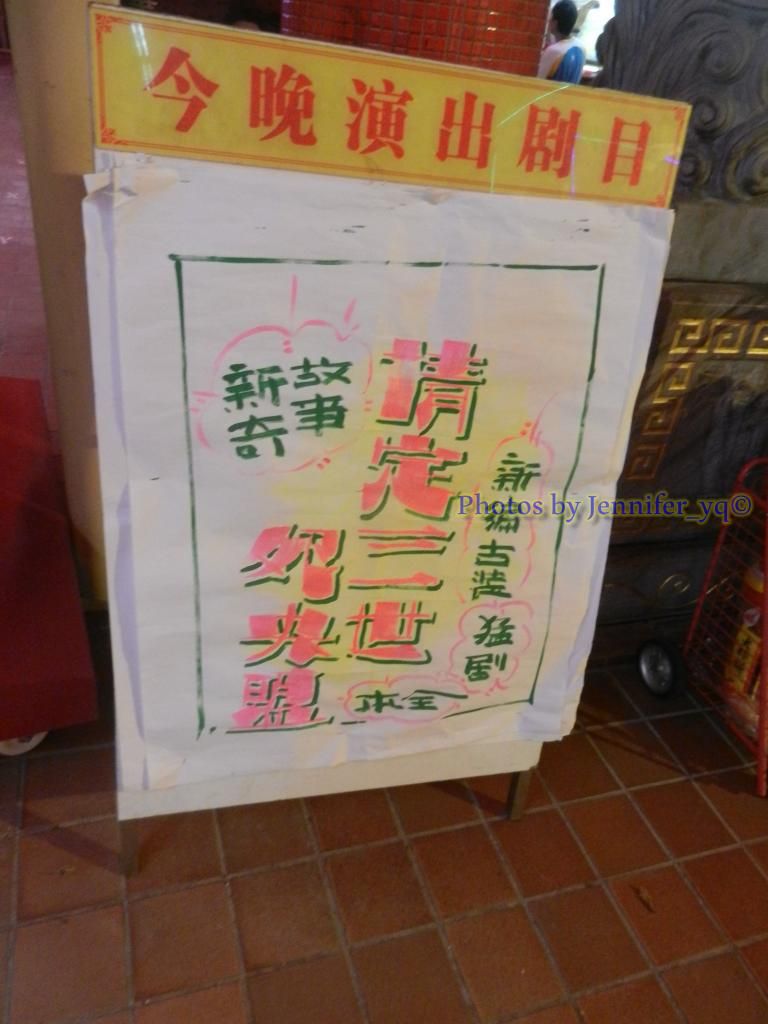 今晚演出剧目
新编古装
猛剧
情定三世
夗央盟
全本
故事
新奇
Photos by Jennifer_yq©